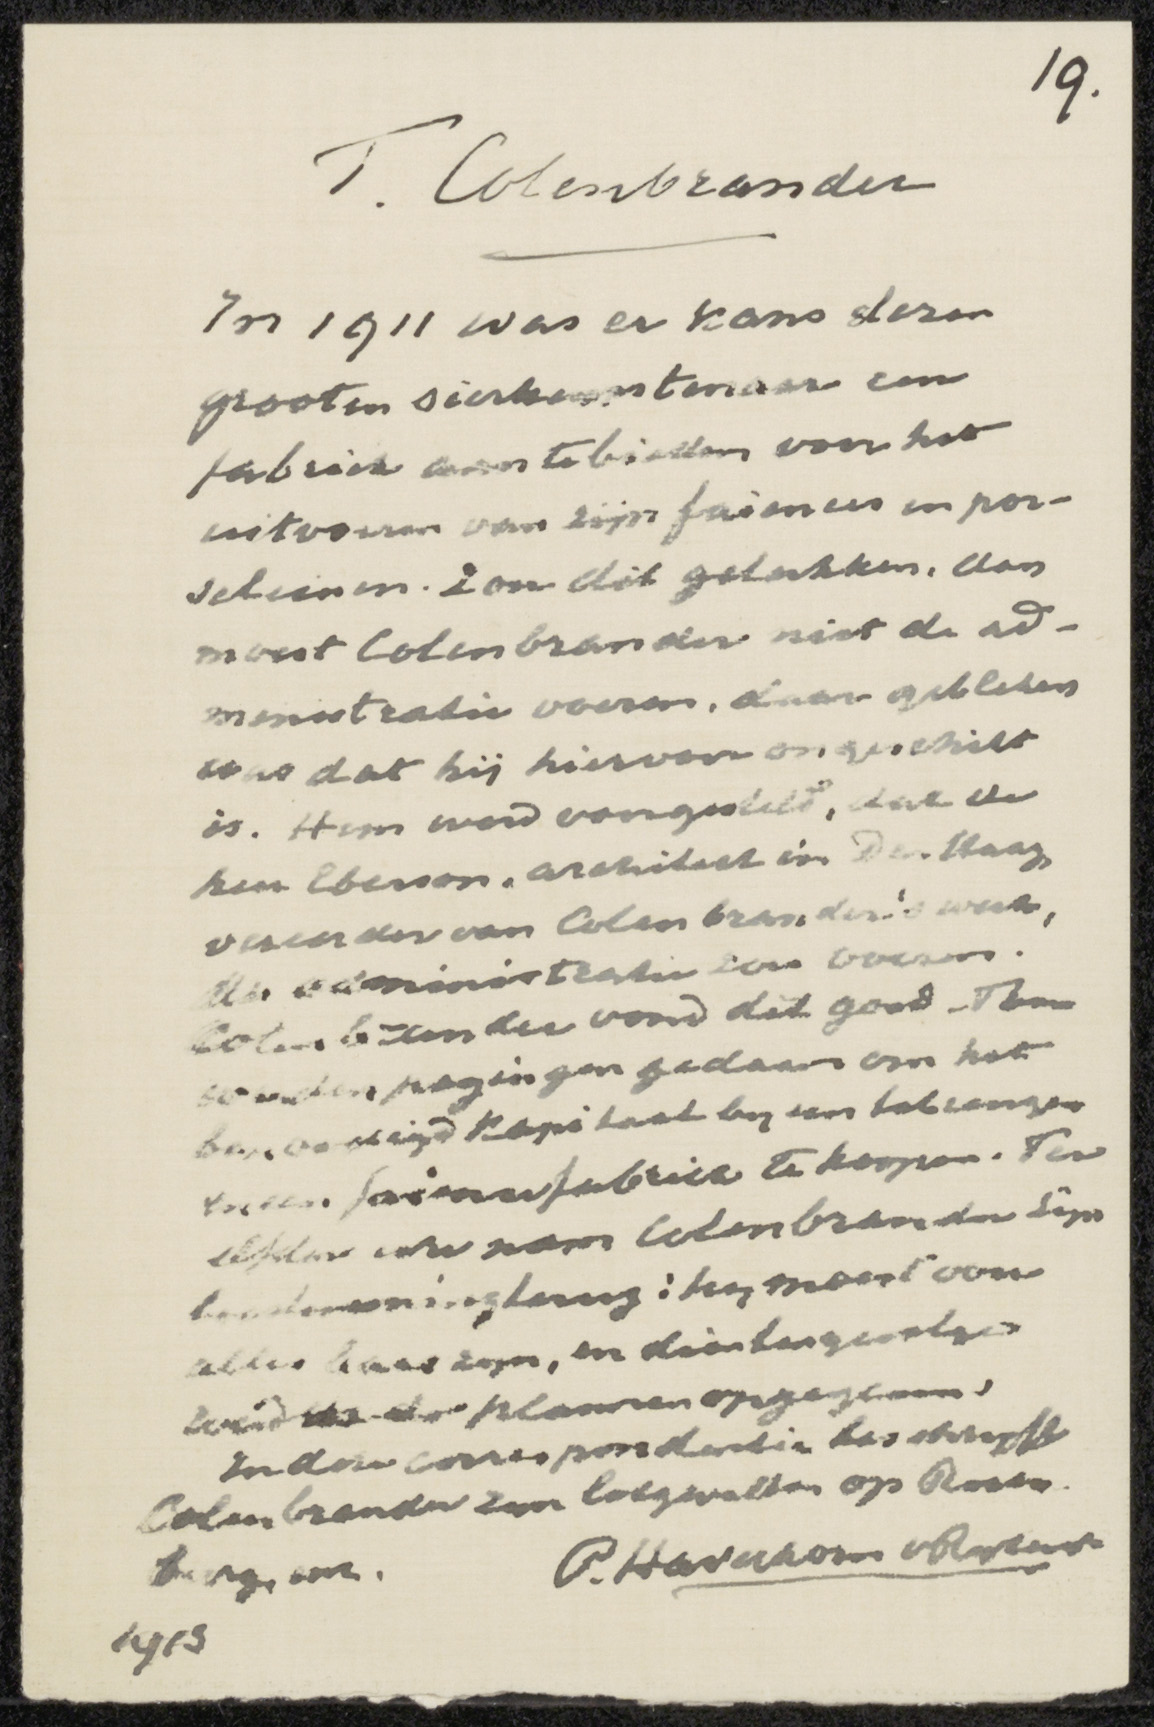 19.
T. Colenbrander
In 1911 was er kans dezen
grooten sierkunstenaar een
fabriek aan te bieden voor het
uitvoeren van zijn faiences en por-
seleinen. Zou dit gelukken, dan
moest Colenbrander niet de ad-
menistratie voeren, daar gebleken
was dat hij hiervoor ongeschikt
is. Hem werd voorgesteld, dat de
heer Eberson, architect in Den Haag,
vereerder van Colenbrander's werk,
de administratie zou voeren.
Colenbrander vond dit goed. Toen
werden pogingen gedaan om het
benoodigd kapitaal bij een te
een faiencefabriek te koopen. Ter
elfder ure nam Colenbrander zijn
terug: hij moest voor
alles baas zijn, en dientengevolge
werd de plannen opgegeven.
In deze correspondentie beschrijft
Colenbrander zijn lotgevallen op Rozen
burg, enz. P. Haverkorn v Rijsewijk
1913